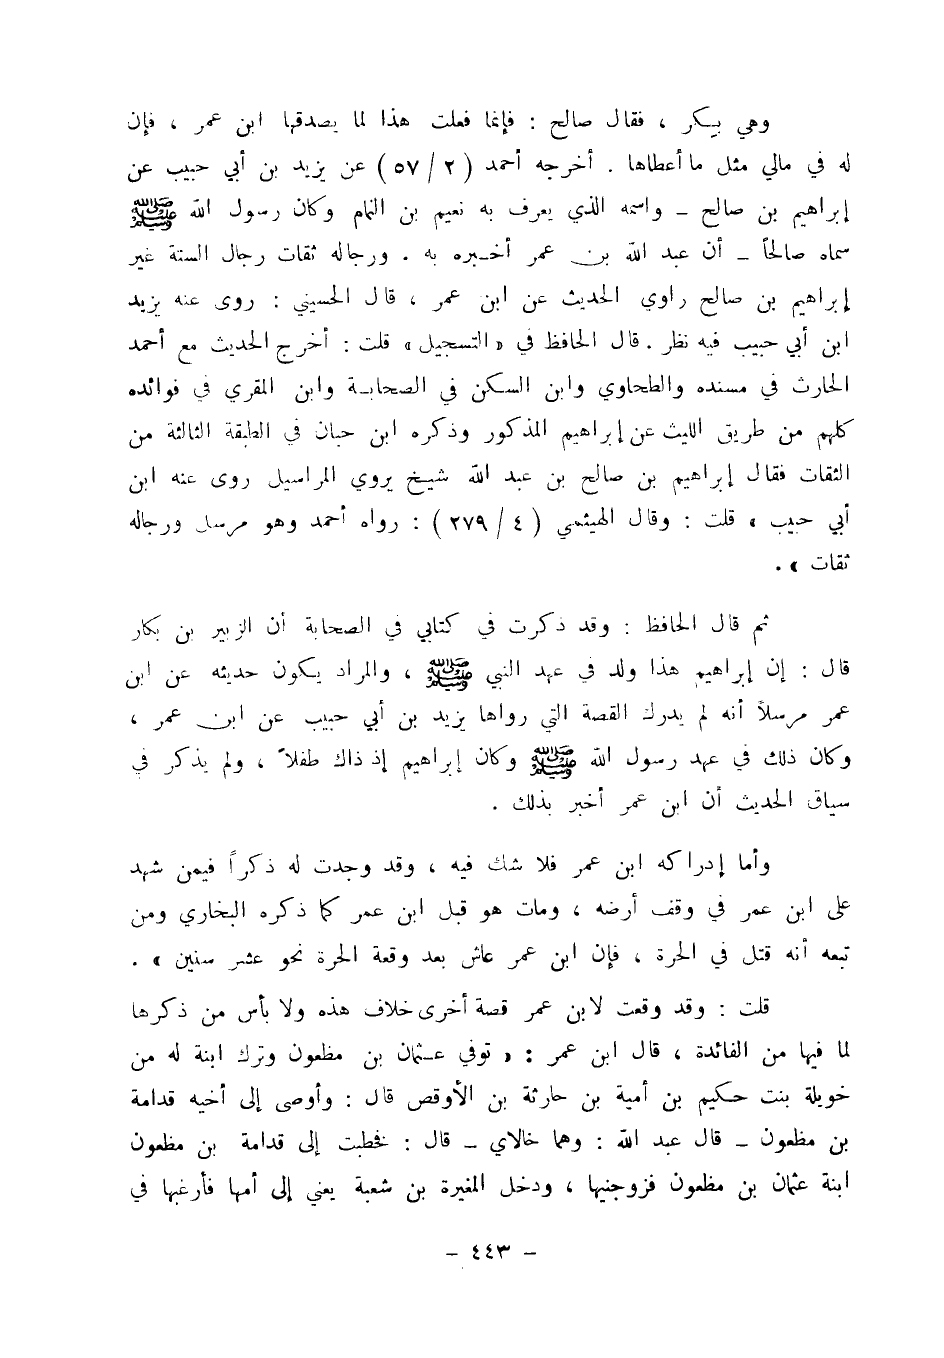 وهي بـكر ، فقال صالح : فإنما فعلت هذا لما يصدقها ابن عمر ، فإن
له في مالي مثل ما أعطاها . أخرجه أحمد ( ٢ / ٥٧ ) عن يزيد بن أبي حبيب عن
إبراهيم بن صالح – واسمه الذي يعرف به نعيم بن النحام وكان رسول الله ﷺ
سماه صالحاً – أن عبد الله بن عمر أخبره به . ورجاله ثقات رجال الستة غير
إبراهيم بن صالح راوي الحديث عن ابن عمر ، قال الحسيني : روى عنه يزيد
ابن أبي حبيب فيه نظر . قال الحافظ في « التسجيل » قلت : أخرج الحديث مع أحمد
الحارث في مسنده والطحاوي وابن السكن في الصحابة وابن المقري في فوائده
كلهم من طريق الليث عن إبراهيم المذكور وذكره ابن حبان في الطبقة الثالثة من
الثقات فقال إبراهيم بن صالح بن عبد الله شيخ يروي المراسيل روى عنه ابن
أبي حبيب » قلت : وقال الهيثمي ( ٤ / ٢٧٩ ) : رواه أحمد وهو مرسل ورجاله
ثقات » .
ثم قال الحافظ : وقد ذكرت في كتابي في الصحابة أن الزبير بن بكار
قال : إن إبراهيم هذا ولد في عهد النبي ﷺ ، والمراد يكون حديثه عن ابن
عمر مرسلاً أنه لم يدرك القصة التي رواها يزيد بن أبي حبيب عن ابن عمر ،
وكان ذلك في عهد رسول الله ﷺ وكان إبراهيم إذ ذاك طفلاً ، ولم يذكر في
سياق الحديث أن ابن عمر أخبر بذلك .
وأما إدراكه ابن عمر فلا شك فيه ، وقد وجدت له ذكراً فيمن شهد
على ابن عمر في وقف أرضه ، ومات هو قبل ابن عمر كما ذكره البخاري ومن
تبعه أنه قتل في الحرة ، فإن ابن عمر عاش بعد وقعة الحرة نحو عشر سنين » .
قلت : وقد وقعت لابن عمر قصة أخرى خلاف هذه ولا بأس من ذكرها
لما فيها من الفائدة ، قال ابن عمر : « توفي عثمان بن مظعون وترك ابنة له من
خويلة بنت حكيم بن أمية بن حارثة بن الأوقص قال : وأوصى إلى أخيه قدامة
بن مظعون – قال عبد الله : وهما خالاي – قال : فخطبت إلى قدامة بن مظعون
ابنة عثمان بن مظعون فزوجنيها ، ودخل المغيرة بن شعبة يعني إلى أمها فأرغبها في
– ٤٤٣ –